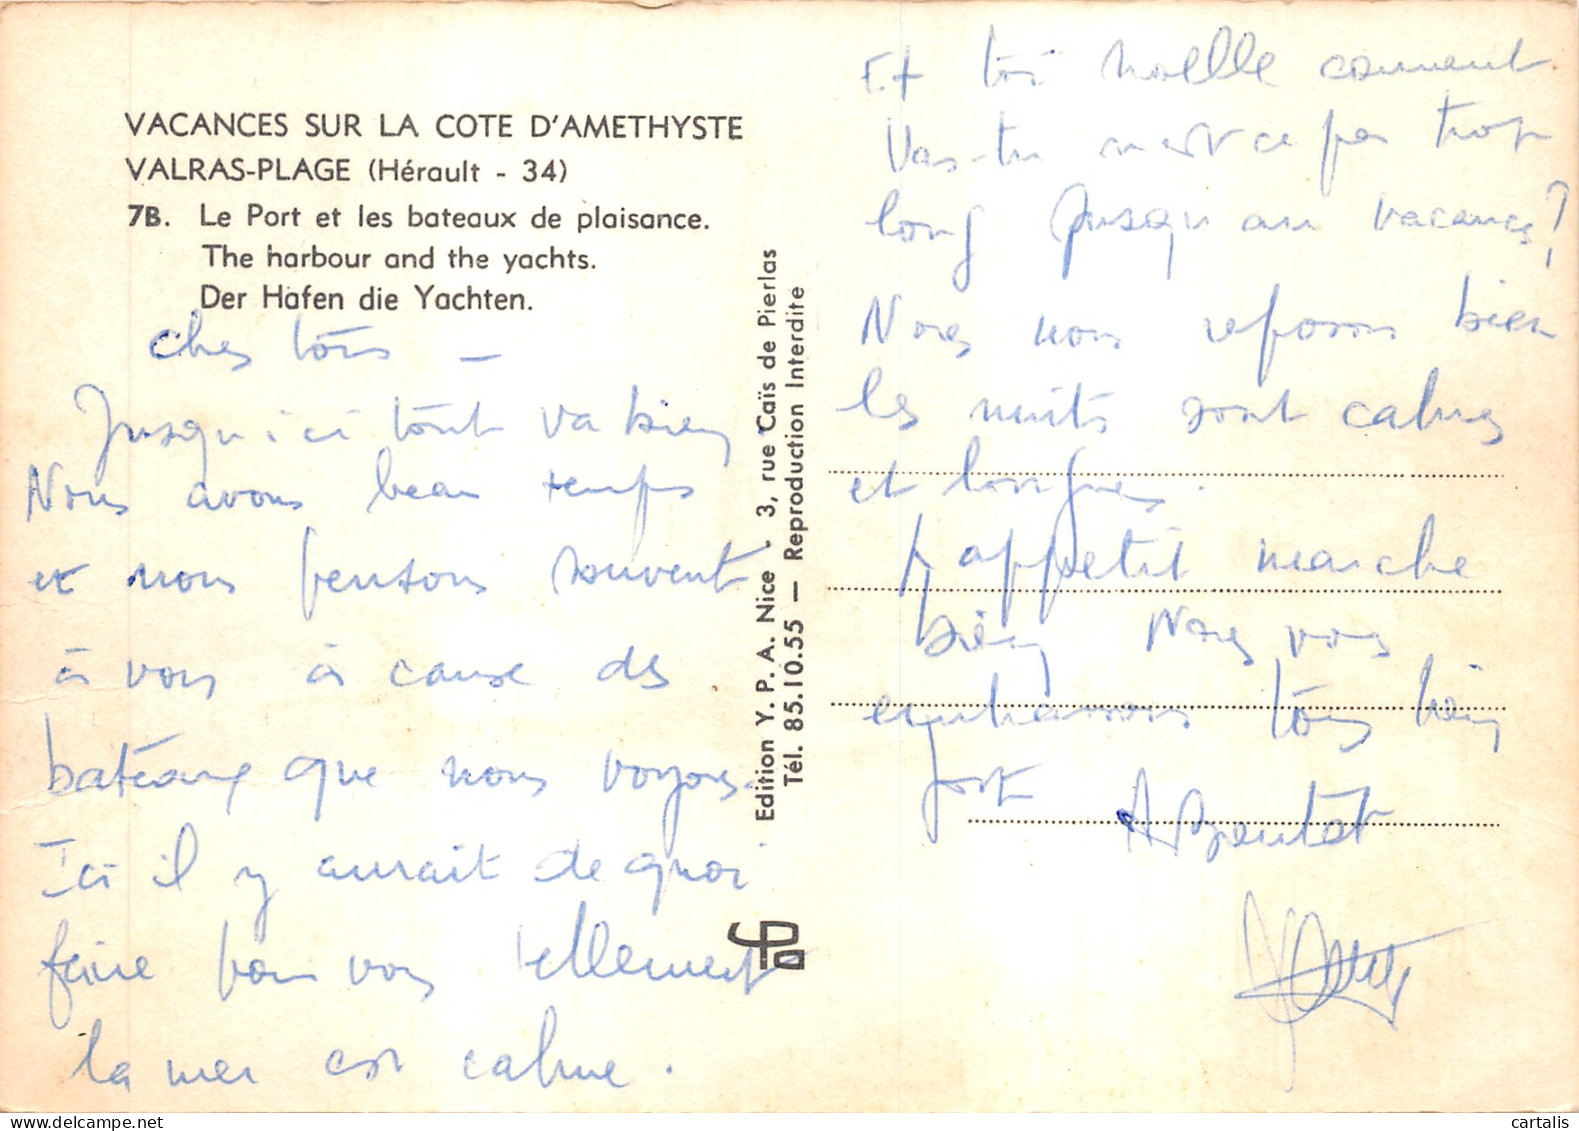 VACANCES SUR LA COTE D'AMETHYSTE
VALRAS-PLAGE (Hérault - 34)
7B. Le Port et les bateaux de plaisance.
The harbour and the yachts.
Der Hafen die Yachten.
chers tous —
Jusqu'ici tout va bien
Nous avons beau temps
et nous pensons souvent
à vous à cause des
bateaux que nous voyons.
Ici il y aurait de quoi
faire pour vous tellement
la mer est calme.
Edition Y. P. A. Nice - 3, rue Caïs de Pierlas
Tél. 85.10.55 — Reproduction Interdite
ypa
Et toi Noelle comment
Vas-tu n'est ce pas trop
long jusqu'au vacances?
Nous nous reposons bien
les nuits sont calmes
et longues.
L'appetit marche
bien Nous vous
embrassons tous bien
fort
cartalis